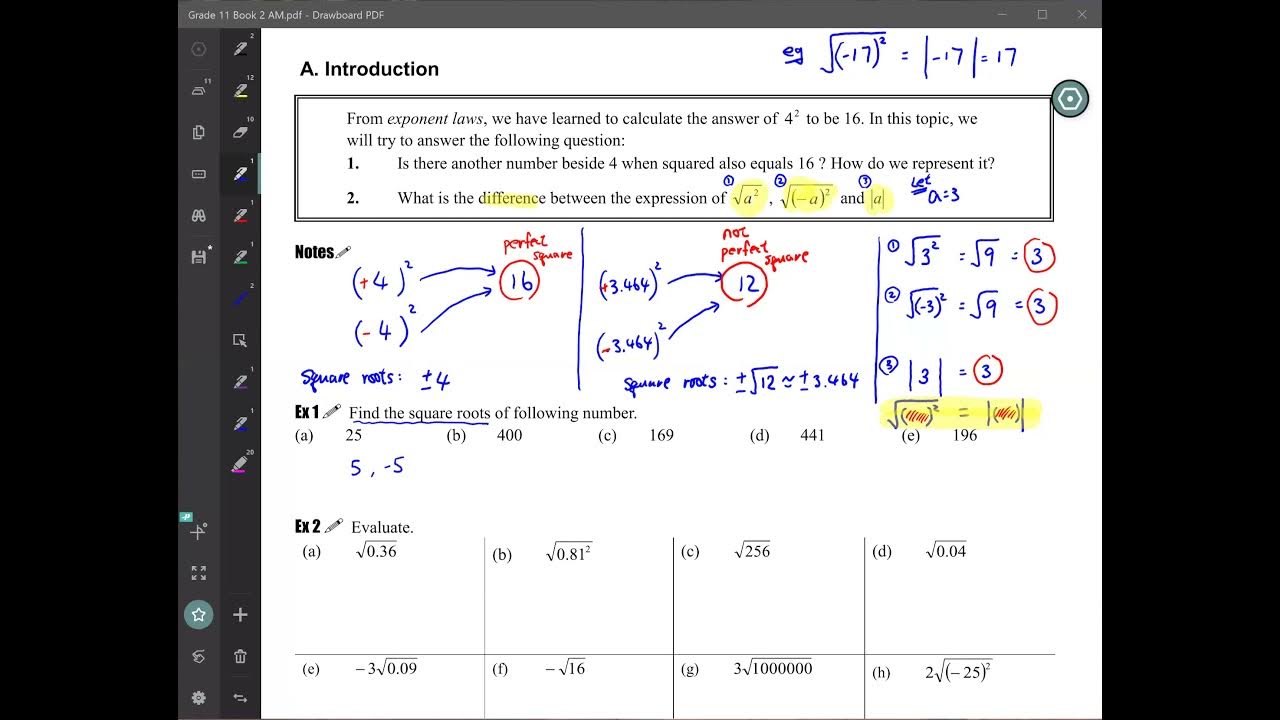 Grade 11 Book 2 AM.pdf - Drawboard PDF
eg √(-17)² = |-17| = 17
A. Introduction
From exponent laws, we have learned to calculate the answer of 4² to be 16. In this topic, we
will try to answer the following question:
1. Is there another number beside 4 when squared also equals 16 ? How do we represent it?
① ② ③ Let
2. What is the difference between the expression of √a² , √(−a)² and |a| a=3
Notes
(+4)² 16 perfect square
(-4)²
Square roots: ±4
(+3.464)² 12 not perfect square
(-3.464)²
Square roots: ±√12 ≈ ±3.464
① √3² = √9 = 3
② √(-3)² = √9 = 3
③ |3| = 3
√( )² = |( )|
Ex 1 Find the square roots of following number.
(a) 25 (b) 400 (c) 169 (d) 441 (e) 196
5 , -5
Ex 2 Evaluate.
(a) √0.36 (b) √0.81² (c) √256 (d) √0.04
(e) −3√0.09 (f) −√16 (g) 3√1000000 (h) 2√(−25)²
2
11
12
10
1
1
1
2
1
1
20
P